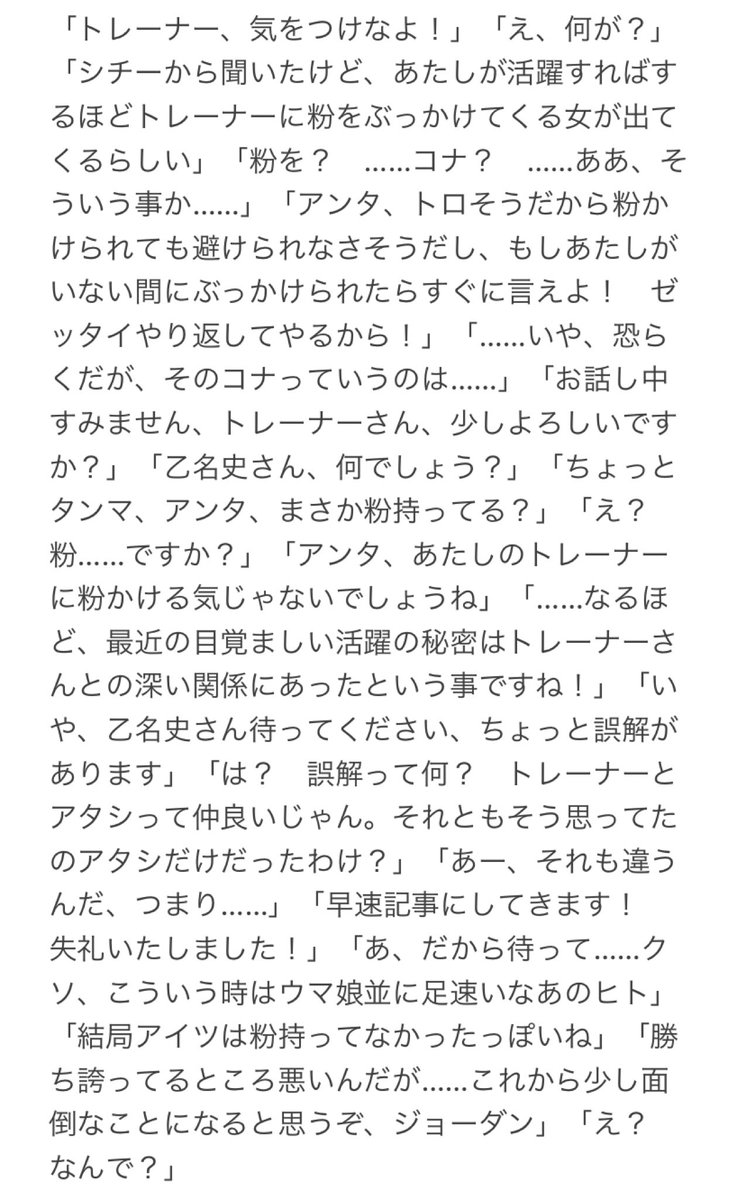 「トレーナー、気をつけなよ！」「え、何が？」
「シチーから聞いたけど、あたしが活躍すればす
るほどトレーナーに粉をぶっかけてくる女が出て
くるらしい」「粉を？　……コナ？　……ああ、そ
ういう事か……」「アンタ、トロそうだから粉か
けられても避けられなさそうだし、もしあたしが
いない間にぶっかけられたらすぐに言えよ！　ゼ
ッタイやり返してやるから！」「……いや、恐ら
くだが、そのコナっていうのは……」「お話し中
すみません、トレーナーさん、少しよろしいです
か？」「乙名史さん、何でしょう？」「ちょっと
タンマ、アンタ、まさか粉持ってる？」「え？
粉……ですか？」「アンタ、あたしのトレーナー
に粉かける気じゃないでしょうね」「……なるほ
ど、最近の目覚ましい活躍の秘密はトレーナーさ
んとの深い関係にあったという事ですね！」「い
や、乙名史さん待ってください、ちょっと誤解が
あります」「は？　誤解って何？　トレーナーと
アタシって仲良いじゃん。それともそう思ってた
のアタシだけだったわけ？」「あー、それも違う
んだ、つまり……」「早速記事にしてきます！
失礼いたしました！」「あ、だから待って……ク
ソ、こういう時はウマ娘並に足速いなあのヒト」
「結局アイツは粉持ってなかったっぽいね」「勝
ち誇ってるところ悪いんだが……これから少し面
倒なことになると思うぞ、ジョーダン」「え？
なんで？」